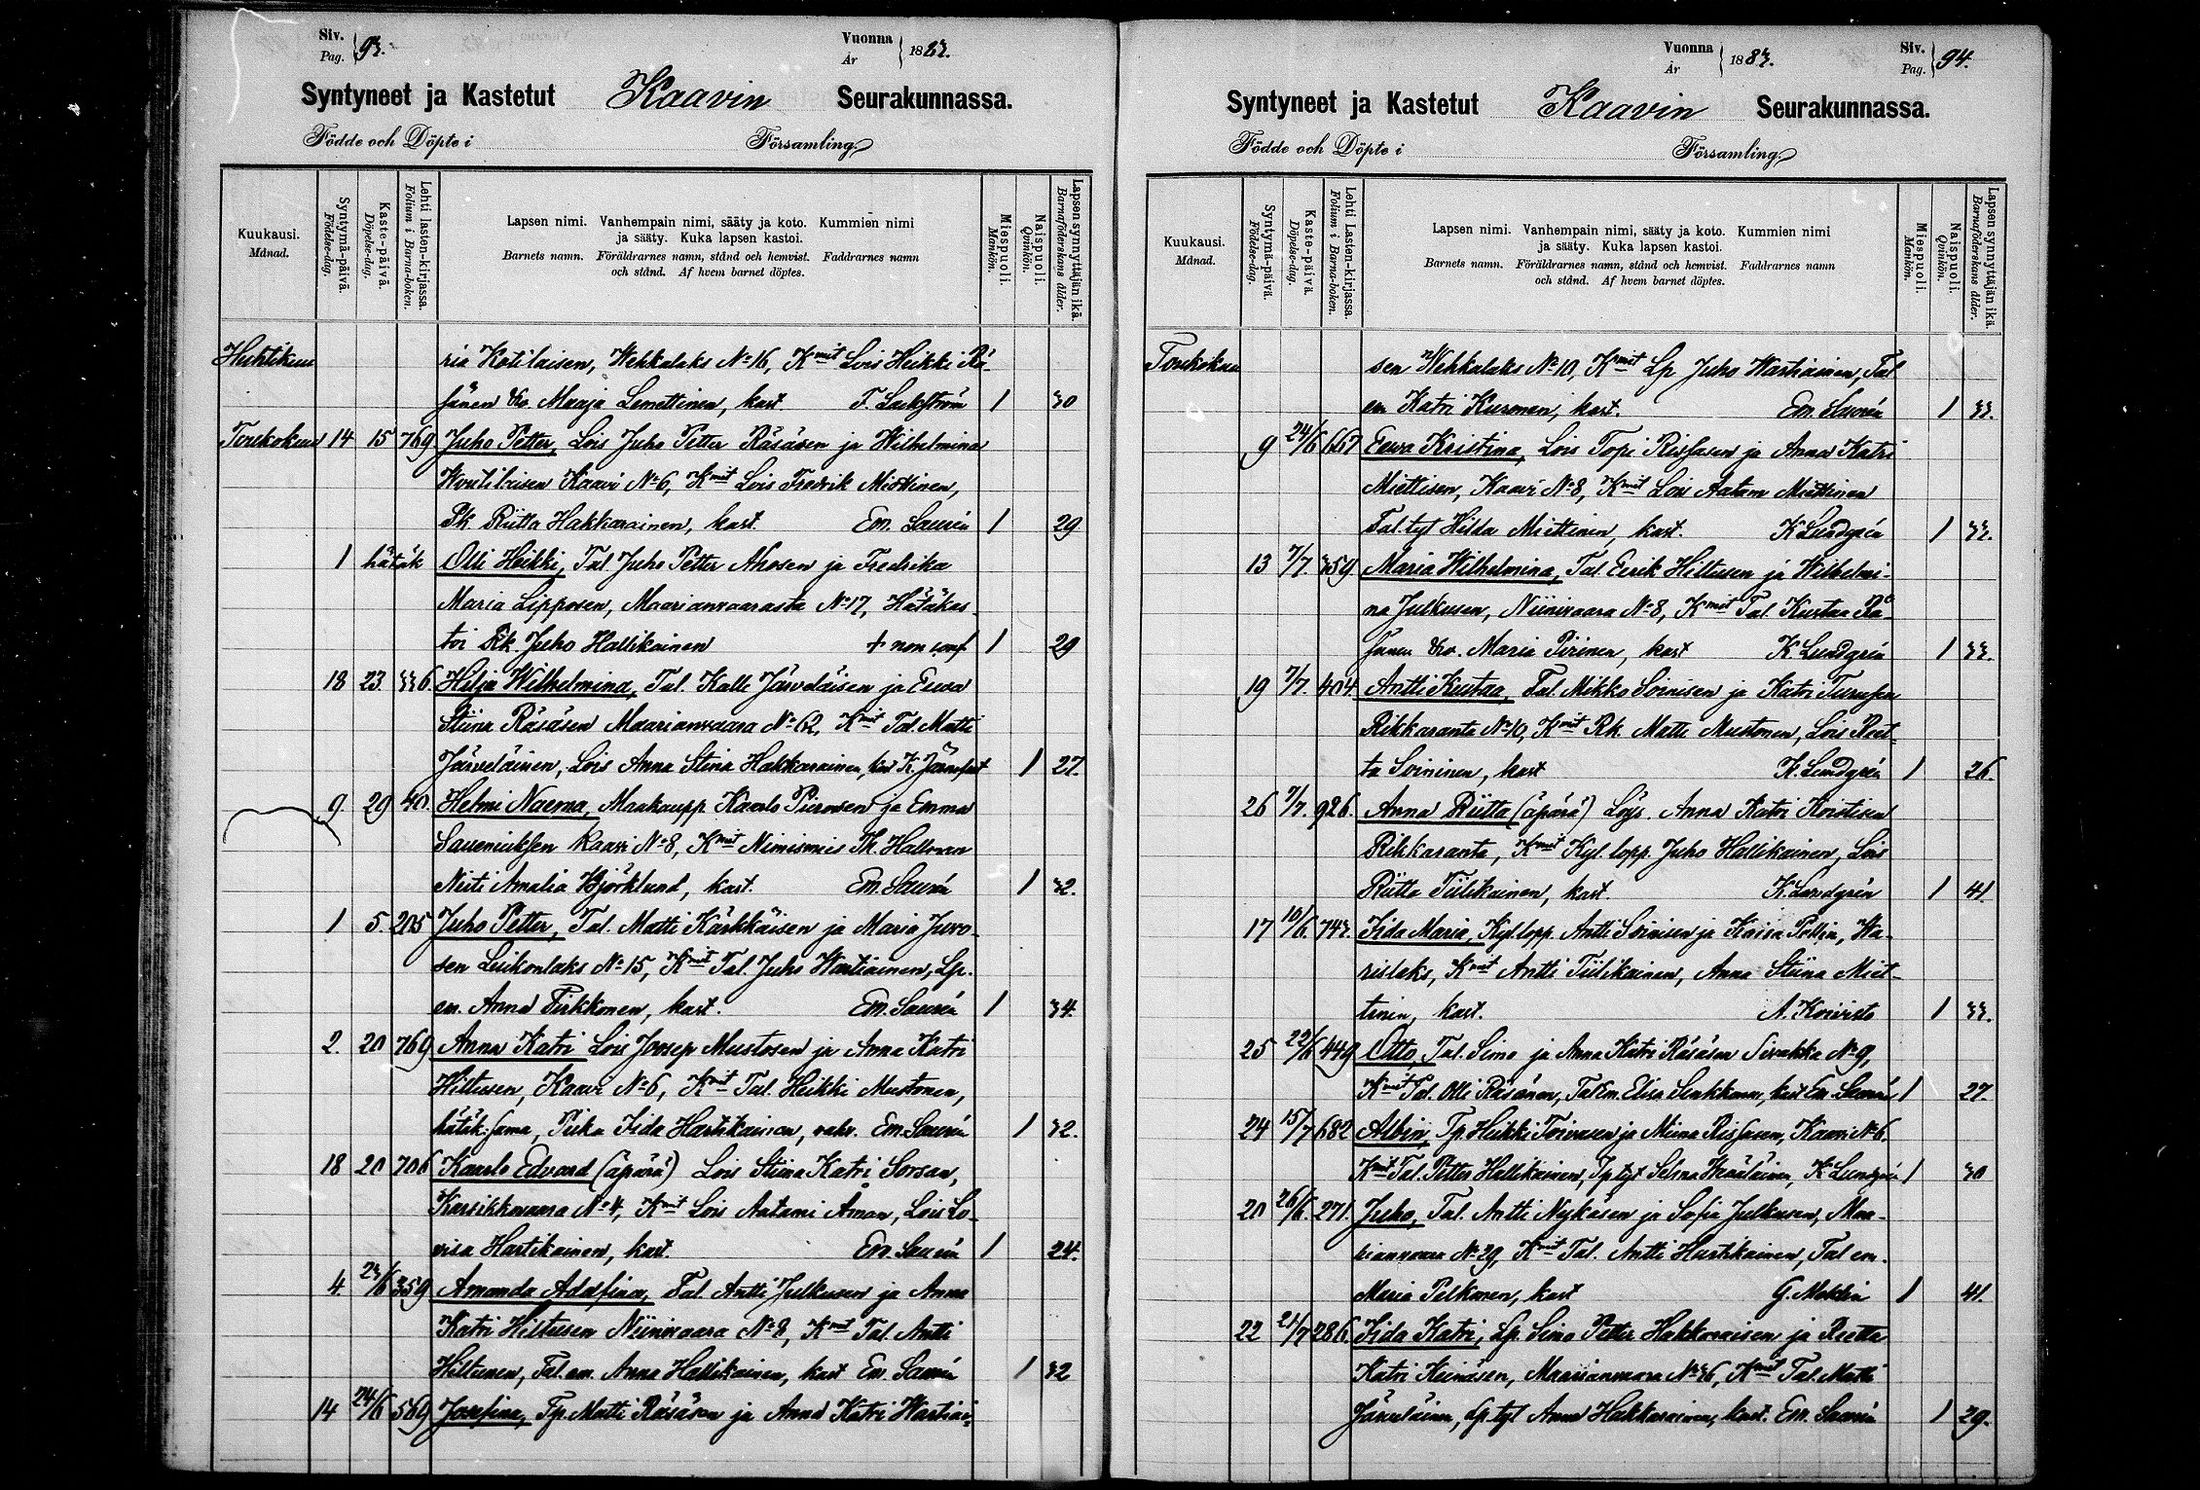 Siv. Pag. 93. Vuonna År 1883.
Syntyneet ja Kastetut Kaavin Seurakunnassa.
Födde och Döpte i Församling
Kuukausi. Månad.
Syntymä-päivä. Födelse-dag.
Kaste-päivä. Döpelse-dag.
Lehti lasten-kirjassa. Folium i Barna-boken.
Lapsen nimi. Vanhempain nimi, sääty ja koto. Kummien nimi
ja sääty. Kuka lapsen kastoi.
Barnets namn. Föräldrarnes namn, stånd och hemvist. Faddrarnes namn
och stånd. Af hvem barnet döptes.
Miespuoli. Mankön.
Naispuoli. Qvinkön.
Lapsen synnyttäjän ikä. Barnaföderskans ålder.
Huhtikuu ria Kotilaisen, Wehkalaks No 16, Kmit Lois Heikki Rä-
sänen Vro. Maaja Lemettinen, kast. F. Lackström 1 30
Toukokuu 14 15 769 Juho Petter, Lois Juho Petter Räsäsen ja Wilhelmina
Woutilaisen Kaavi No 6, Kmit Lois Fredrik Miettinen,
Pk Riitta Hakkarainen, kast. Em. Saurén 1 29
1 hätäk Olli Heikki, Tal. Juho Petter Ahosen ja Fredrika
Maria Lipposen, Maarianvaarasta No 17, Hätäkas-
toi Rk. Juho Hallikainen + non conf. 1 29
18 23 336. Hilja Wilhelmina, Tal. Kalle Järveläisen ja Eeva
Stiina Räsäsen Maarianvaara No 62, Kmit Tal. Matti
Järveläinen, Lois Anna Stina Hakkarainen, kast K. 1 27.
9. 29 40. Helmi Naema, Maakaupp Kaarlo Piironen ja Emma
Sareniuksen Kaavi No 8, Kmit Nimismies Th. Hallman
Neiti Amalia Björklund, kast. Em. Saurén 1 32.
1 5. 205 Juho Petter, Tal. Matti Kärkkäisen ja Maria Juvo-
sen Luikonlaks No 15, Kmit Tal. Juho Wartiainen, Lp.
em. Anna Pirkkonen, kast. Em. Saurén 1 34.
2. 20 769 Anna Katri Lois Joosep Mustosen ja Anna Katri
Hiltusen, Kaavi No 6, Kmit Tal. Heikki Mustonen,
hätäk: sama, Piika Iida Hartikainen, vahv. Em. Saurén 1 32.
18 20 706 Kaarlo Edvard (äpärä) Lois Stiina Katri Sorsan,
Karsikkovaara No 4, Kmit Lois Aatami Aman, Lois Lo-
visa Hartikainen, kast. Em. Saurén 1 24.
4 23/6 359 Amanda Adolfina, Tal. Antti Julkusen ja Anna
Katri Hiltusen Niinivaara No 8, Kmit Tal. Antti
Hiltunen, Tal. em. Anna Hallikainen, kast Em. Saurén 1 32
14 24/6 569 Josefina, Tp. Matti Räsäsen ja Anna Katri Wartiai-
Vuonna År 1883. Siv. Pag. 94.
Syntyneet ja Kastetut Kaavin Seurakunnassa.
Födde och Döpte i Församling
Kuukausi. Månad.
Syntymä-päivä. Födelse-dag.
Kaste-päivä. Döpelse-dag.
Lehti Lasten-kirjassa. Folium i Barna-boken.
Lapsen nimi. Vanhempain nimi, sääty ja koto. Kummien nimi
ja sääty. Kuka lapsen kastoi.
Barnets namn. Föräldrarnes namn, stånd och hemvist. Faddrarnes namn
och stånd. Af hvem barnet döptes.
Miespuoli. Mankön.
Naispuoli. Qvinkön.
Lapsen synnyttäjän ikä. Barnaföderskans ålder.
Toukokuu sen Wehkalaks No 10, Kmit Lp Juho Wartiainen, Tal
em Katri Kuronen, kast. Em. Saurén 1 33.
9 24/6 667 Eeva Kristina, Lois Topi Rissasen ja Anna Katri
Miettisen, Kaavi No 8, Kmit Lois Aatam Miettinen
Tal. tyt Hilda Miettinen, kast. K Lundgrén 1 32.
13 7/7. 359 Maria Wilhelmina, Tal. Eerik Hiltusen ja Wilhelmi-
na Julkusen, Niinivaara No 8, Kmit Tal. Kustaa Rä-
sänen Vro. Maria Pirinen, kast K Lundgrén 1 33.
19 7/7. 404 Antti Kustaa, Tal. Mikko Soinisen ja Katri
Rikkaranta No 10, Kmit Rk. Matti Mustonen, Lois Reet-
ta Soininen, kast K. Lundgrén 1 26.
26 7/7. 926. Anna Riitta (äpärä) Lois. Anna Katri Koistisen
Rikkaranta, Kmit Kyl. lopp. Juho Hallikainen, Lois
Riitta Tiilikainen, kast. K. Lundgrén 1 41.
17 10/6. 743. Iida Maria, Kyl lopp. Antti Soinisen ja Kaisa , Wa-
rislaks, Kmit Antti Tiilikainen, Anna Stiina Miet-
tinen, kast. A. Koivisto 1 33.
25 22/6 449 Otto, Tal. Simo ja Anna Katri Räsäsen Sivakka No 9,
Kmit Tal. Olli Räsänen, Tal em. Elisa , kast Em. Saurén 1 27.
24 15/7 682 Albin, Tp. Heikki Toivasen ja Miina Rissasen, Kaavi No 6,
Kmit Tal. Petter Hallikainen, Tp tyt Selma Määtäinen, K Lundgrén 1 30
20 26/6. 271. Juho, Tal. Antti Nykäsen ja Sofia Julkusen, Maa-
rianvaara No 29, Kmit Tal. Antti Hartikainen, Tal em.
Maria Pelkonen, kast G. Meklin 1 41.
22 21/7 286 Iida Katri, Lp. Simo Petter Hakkaraisen ja Reetta
Katri Keinäsen, Maarianvaara No 36, Kmit Tal. Matti
Järveläinen, Lp. tyt Anna Hakkarainen, kast. Em. Saurén 1 29.